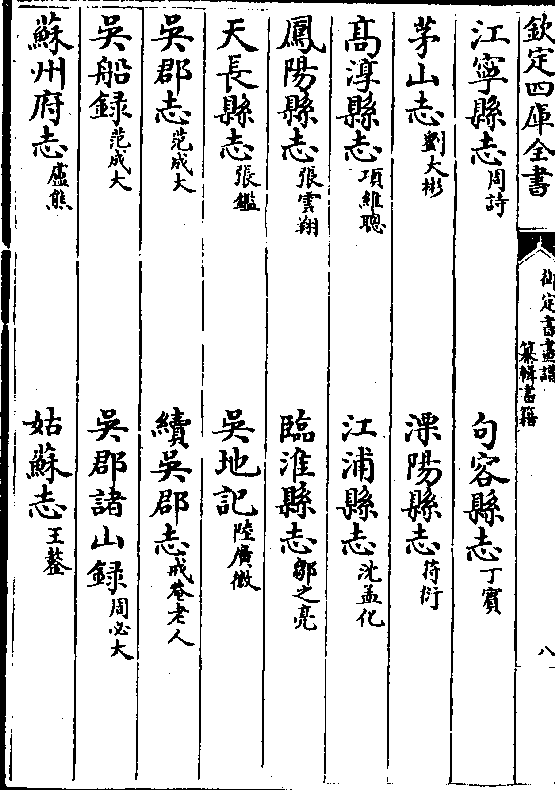 欽定四庫全書
御定書畫譜
纂輯書籍
八
江寧縣志周詩
句容縣志丁賓
茅山志劉大彬
溧陽縣志符衍
髙淳縣志項維聰
江浦縣志沈孟化
鳳陽縣志張雲翔
臨淮縣志鄒之亮
天長縣志張鑑
吳地記陸廣微
吳郡志范成大
續吳郡志戒菴老人
吳船録范成大
吳郡諸山録周必大
蘇州府志盧熊
姑蘇志王鏊